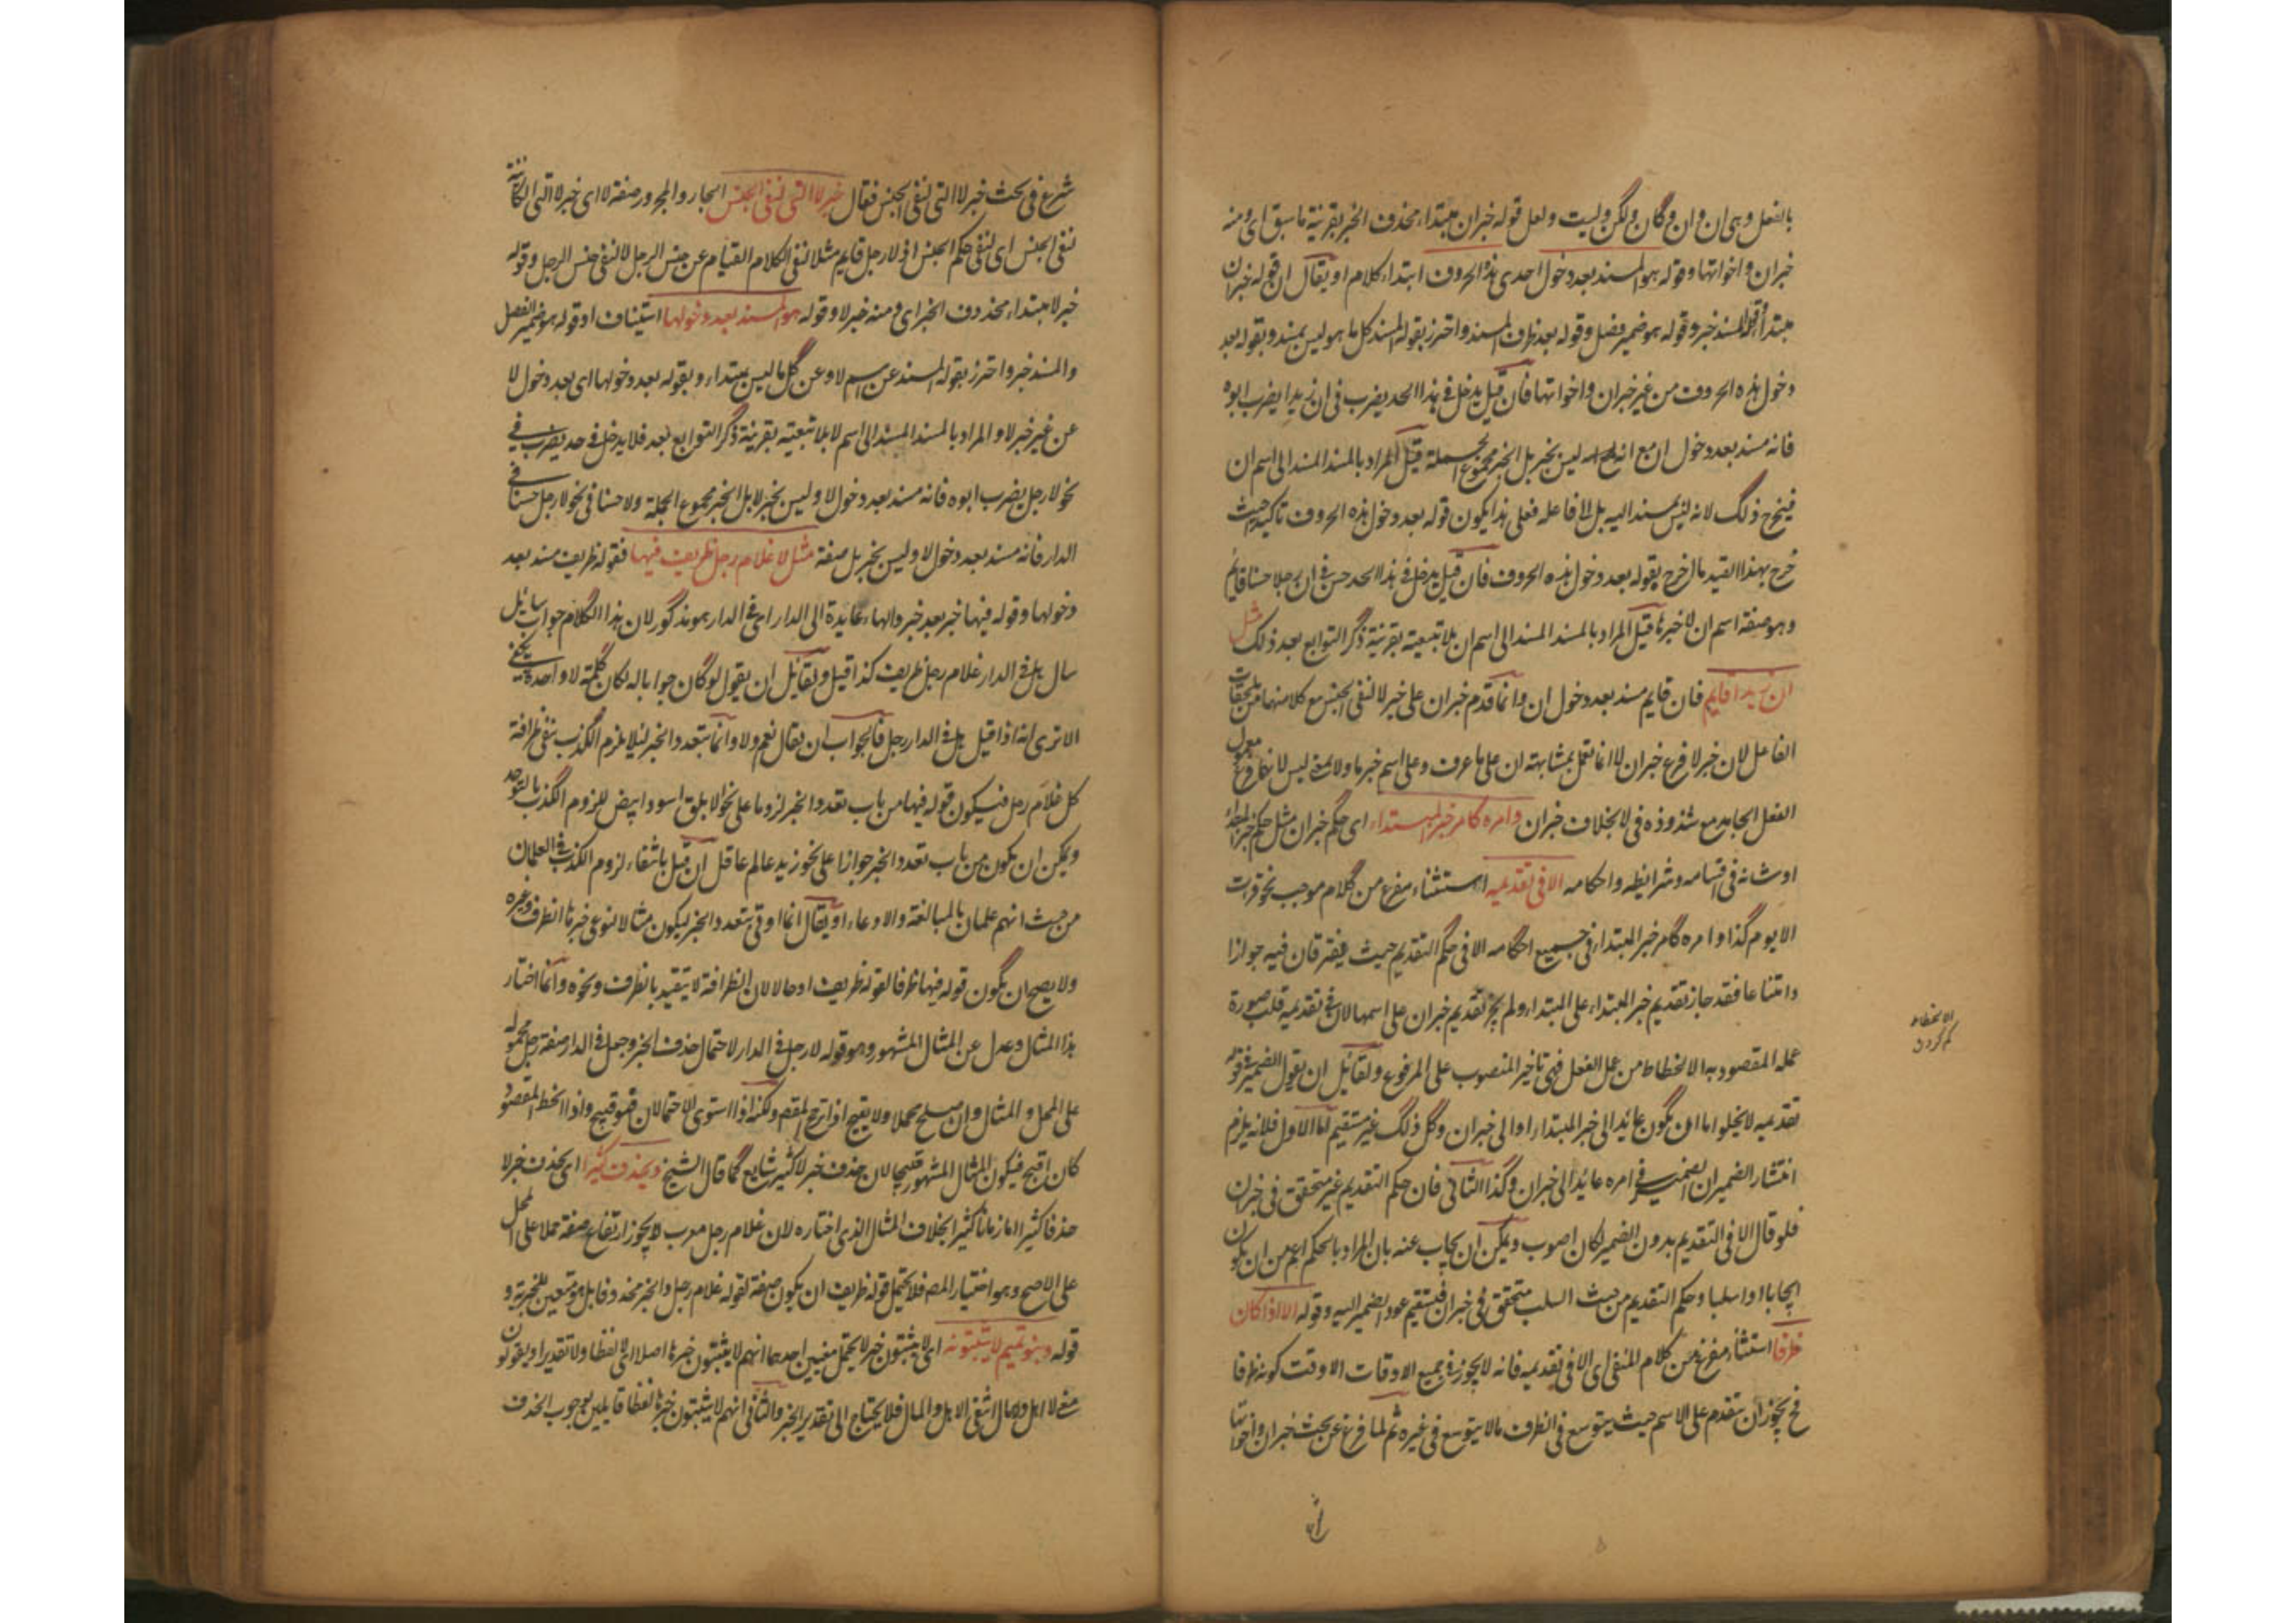 بالفعل وهى ان وان وكان ولكن وليت ولعل قوله خبر ان مبتداء محذوف الخبر بقرينة ما سبق اى ومنه
خبر ان واخواتها وقوله هو المسند بعد دخول احدى هذه الحروف ابتداء كلام او يقال ان قوله خبر ان
مبتدأ وقوله المسند خبر وقوله هو ضمير فصل وقوله بعد ظرف المسند واحترز بقوله المسند كل ما هو ليس بمسند وبقوله بعد
دخول هذه الحروف من غير خبر ان واخواتها فان قيل يدخل فى هذا الحد يضرب فى ان زيدا يضرب ابوه
فانه مسند بعد دخول ان مع انه ليس بخبر بل الخبر مجموع الجملة قيل المراد بالمسند المسند الى اسم ان
فيخرج ذلك لانه ليس بمسند اليه بل الى فاعله فعلى هذا يكون قوله بعد دخول هذه الحروف تاكيد حيث
خرج بهذا القيد ما لخرج بقوله بعد دخول هذه الحروف فان قيل يدخل فى هذا الحد حسن فى ان رجلا حسنا قايم
وهو صفة اسم ان لا خبرها قيل المراد بالمسند المسند الى اسم ان بلا تبعية بقرينة ذكر التوابع بعد ذلك مثل
ان زيدا قايم فان قايم مسند بعد دخول ان وانما قدم خبر ان على خبر لا لنفى الجنس مع كلا منهما من ملحقات
الفاعل لان خبر لا فرع خبر ان لا انما تعمل بمشابهته ان على ما عرف وعلى اسم خبر ما ولا بمعنى ليس لانه معمول فرع
الفعل الجامد مع شذوذه فى لا بخلاف خبر ان وامره كامر خبر المبتداء اى حكم خبر ان مثل حكم خبر المبتدأ
او شانه فى اقسامه وشرايطه واحكامه الا فى تقديمه استثناء مفرغ من كلام موجب نحو قرات
الا يوم كذا وامره كامر خبر المبتداء فى جميع احكامه الا فى حكم التقديم حيث يفترقان فيه جوازا
وامتناعا فقد جاز تقديم خبر المبتداء على المبتداء ولم يجز تقديم خبر ان على اسمها لان فى تقديمه قلب صورة
عمله المقصود به الانحطاط من عمل الفعل فهى تاخير المنصوب على المرفوع ولقائل ان يقول الضمير فى قوله
تقديمه لا يخلوا اما ان يكون عايدا الى خبر المبتداء او الى خبر ان وكل ذلك غير مستقيم اما الاول فلانه يلزم
انتشار الضميران الضمير فى امره عايد الى خبر ان وكذا الثانى فان حكم التقديم غير متحقق فى خبر ان
فلو قال الا فى التقديم بدون الضمير لكان اصوب ويمكن ان يجاب عنه بان المراد بالحكم اعم من ان يكون
ايجابا او سلبا وحكم التقديم من حيث السلب متحقق فى خبر ان فيستقيم عود الضمير اليه وقوله الا اذا كان
ظرفا استثناء مفرغ من كلام المنفى اى الا فى تقديمه فانه لا يجوز فى جميع الاوقات الا وقت كونه ظرفا
فح يجوز ان يتقدم على الاسم حيث يتوسع فى الظرف ما لا يتوسع فى غيره ثم لما فرغ عن بحث خبر ان واخواتها
الانحطاط
كم كردن
شرع فى بحث خبر لا التى لنفى الجنس فقال خبر لا التى لنفى الجنس الجار والمجرور صفة لا اى خبر لا التى الكائنة
لنفى الجنس اى لنفى حكم الجنس اذ لا رجل قايم مثلا لنفى الكلام القيام عن جنس الرجل لا لنفى جنس الرجل وقوله
خبر لا مبتداء محذوف الخبر اى ومنه خبر لا وقوله هو المسند بعد دخولها استيناف او قوله هو ضمير الفصل
والمسند خبر واحترز بقوله المسند عن اسم لا وعن كل ما ليس بمبتداء وبقوله بعد دخولها اى بعد دخول لا
عن غير خبر لا والمراد بالمسند المسند الى اسم لا بلا تبعية بقرينة ذكر التوابع بعد فلا يدخل فى حد يضرب فى
نحو لا رجل يضرب ابوه فانه مسند بعد دخول لا وليس بخبر لا بل الخبر مجموع الجملة ولا حسنا فى نحو لا رجل حسنا فى
الدار فانه مسند بعد دخول لا وليس بخبر بل صفة مثل لا غلام رجل ظريف فيها فقوله ظريف مسند بعد
دخولها وقوله فيها خبر بعد خبر والهاء عايدة الى الدار اى فى الدار هو مذكور لان هذا الكلام جواب سايل
سال هل فى الدار غلام رجل ظريف كذا قيل ولقائل ان يقول لو كان جوابا له لكان كلمة لا واحدة يكفى
الا ترى انه اذا قيل هل فى الدار رجل فالجواب ان يقال نعم ولا وانما يتعدد الخبر لئلا يلزم الكذب بنفى ظرافة
كل غلام رجل فيكون قوله فيها من باب تعدد الخبر لزوما على نحو الابلق اسود وابيض للزوم الكذب بالتوحد
ويمكن ان يكون من باب تعدد الخبر جوازا على نحو زيد عالم عاقل ان قيل بانتفاء لزوم الكذب فى الغلمان
من حيث انهم غلمان بالمبالغة والادعاء او يقال انما اوتى بتعدد الخبر ليكون مثالا لنوعى خبرها الظرف وغيره
ولا يصح ان يكون قوله فيها ظرفا لقوله ظريف او حالا لان الظرافة لا يتقيد بالظرف ونحوه وانما اختار
هذا المثال وعدل عن المثال المشهور وهو قوله لا رجل فى الدار لاحتمال حذف الخبر وجعل فى الدار صفة رجل محموله
على المحل والمثال وان صلح محملا ولا يقبح اذا ترجح المقصد ولكنه اذا استوى الاحتمالان فهو قبيح واذا انحط المقصود
كان اقبح فيكون المثال المشهور قبيحا لان حذف خبر لا كثير شايع كما قال الشيخ ويحذف كثيرا اى يحذف خبر لا
حذفا كثيرا او زمانا كثيرا بخلاف المثال الذى اختاره لان غلام رجل معرب لا يجوز ارتفاع صفة حملا على المحل
على الاصح وهو اختيار المصه فلا يحتمل قوله ظريف ان يكون صفة لقوله غلام رجل والخبر محذوفا بل هو متعين للخبرية و
قوله وبنو تميم لا يثبتونه اى لا يثبتون خبر لا يحتمل معنيين احدهما انهم لا يثبتون خبرها اصلا اى لا لفظا ولا تقديرا ويقولون
معنى لا اهل ولا مال انتفى الاهل والمال فلا يحتاج الى تقدير الخبر والثانى انهم لا يثبتون خبرها لفظا قايلين بوجوب الحذف